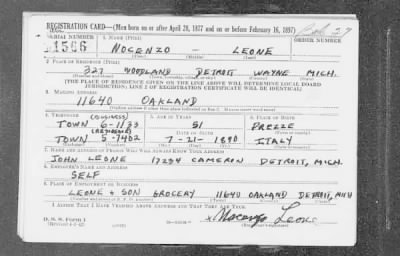 REGISTRATION CARD—(Men born on or after April 28, 1877 and on or before February 16, 1897)
SERIAL NUMBER 1. NAME (Print) ORDER NUMBER
1566 NOCENZO — LEONE
2. PLACE OF RESIDENCE (Print)
327 WOODLAND DETROIT WAYNE MICH.
[THE PLACE OF RESIDENCE GIVEN ON THE LINE ABOVE WILL DETERMINE LOCAL BOARD
JURISDICTION; LINE 2 OF REGISTRATION CERTIFICATE WILL BE IDENTICAL]
3. MAILING ADDRESS
11640 OAKLAND
4. TELEPHONE (BUSINESS) 5. AGE IN YEARS 6. PLACE OF BIRTH
TOWN 6-1133 51 PREZZE
(RESIDENCE) DATE OF BIRTH
TOWN 5-7402 7-21-1890 ITALY
7. NAME AND ADDRESS OF PERSON WHO WILL ALWAYS KNOW YOUR ADDRESS
JOHN LEONE 17234 CAMERON DETROIT, MICH.
8. EMPLOYER'S NAME AND ADDRESS
SELF
9. PLACE OF EMPLOYMENT OR BUSINESS
LEONE & SON GROCERY 11640 OAKLAND DETROIT, MICH
I AFFIRM THAT I HAVE VERIFIED ABOVE ANSWERS AND THAT THEY ARE TRUE.
D. S. S. Form 1
x Nocenzo Leone